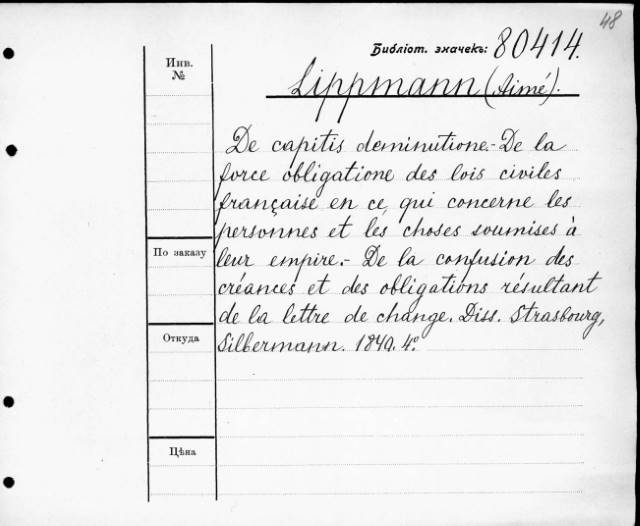 48
Библіот. значекъ: 80414.
Инв.
№
Lippmann (Aimé).
De capitis deminutione.- De la
force obligatione des lois civiles
française en ce qui concerne les
personnes et les choses soumises à
По заказу
leur empire.- De la confusion des
créances et des obligations résultant
de la lettre de change. Diss. Strasbourg,
Откуда
Silbermann. 1840. 4º
Цѣна